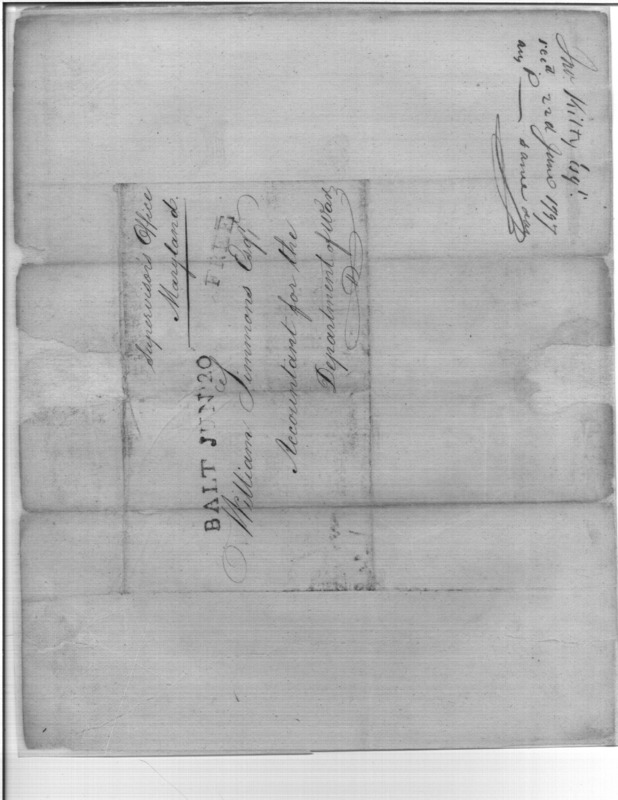 Supervisor's Office
Maryland.
BALT JUN 20
FREE
William Simmons Esqr
Accountant for the
Department of War
Jno Kilty Esqr.
recd 22d June 1797
same day